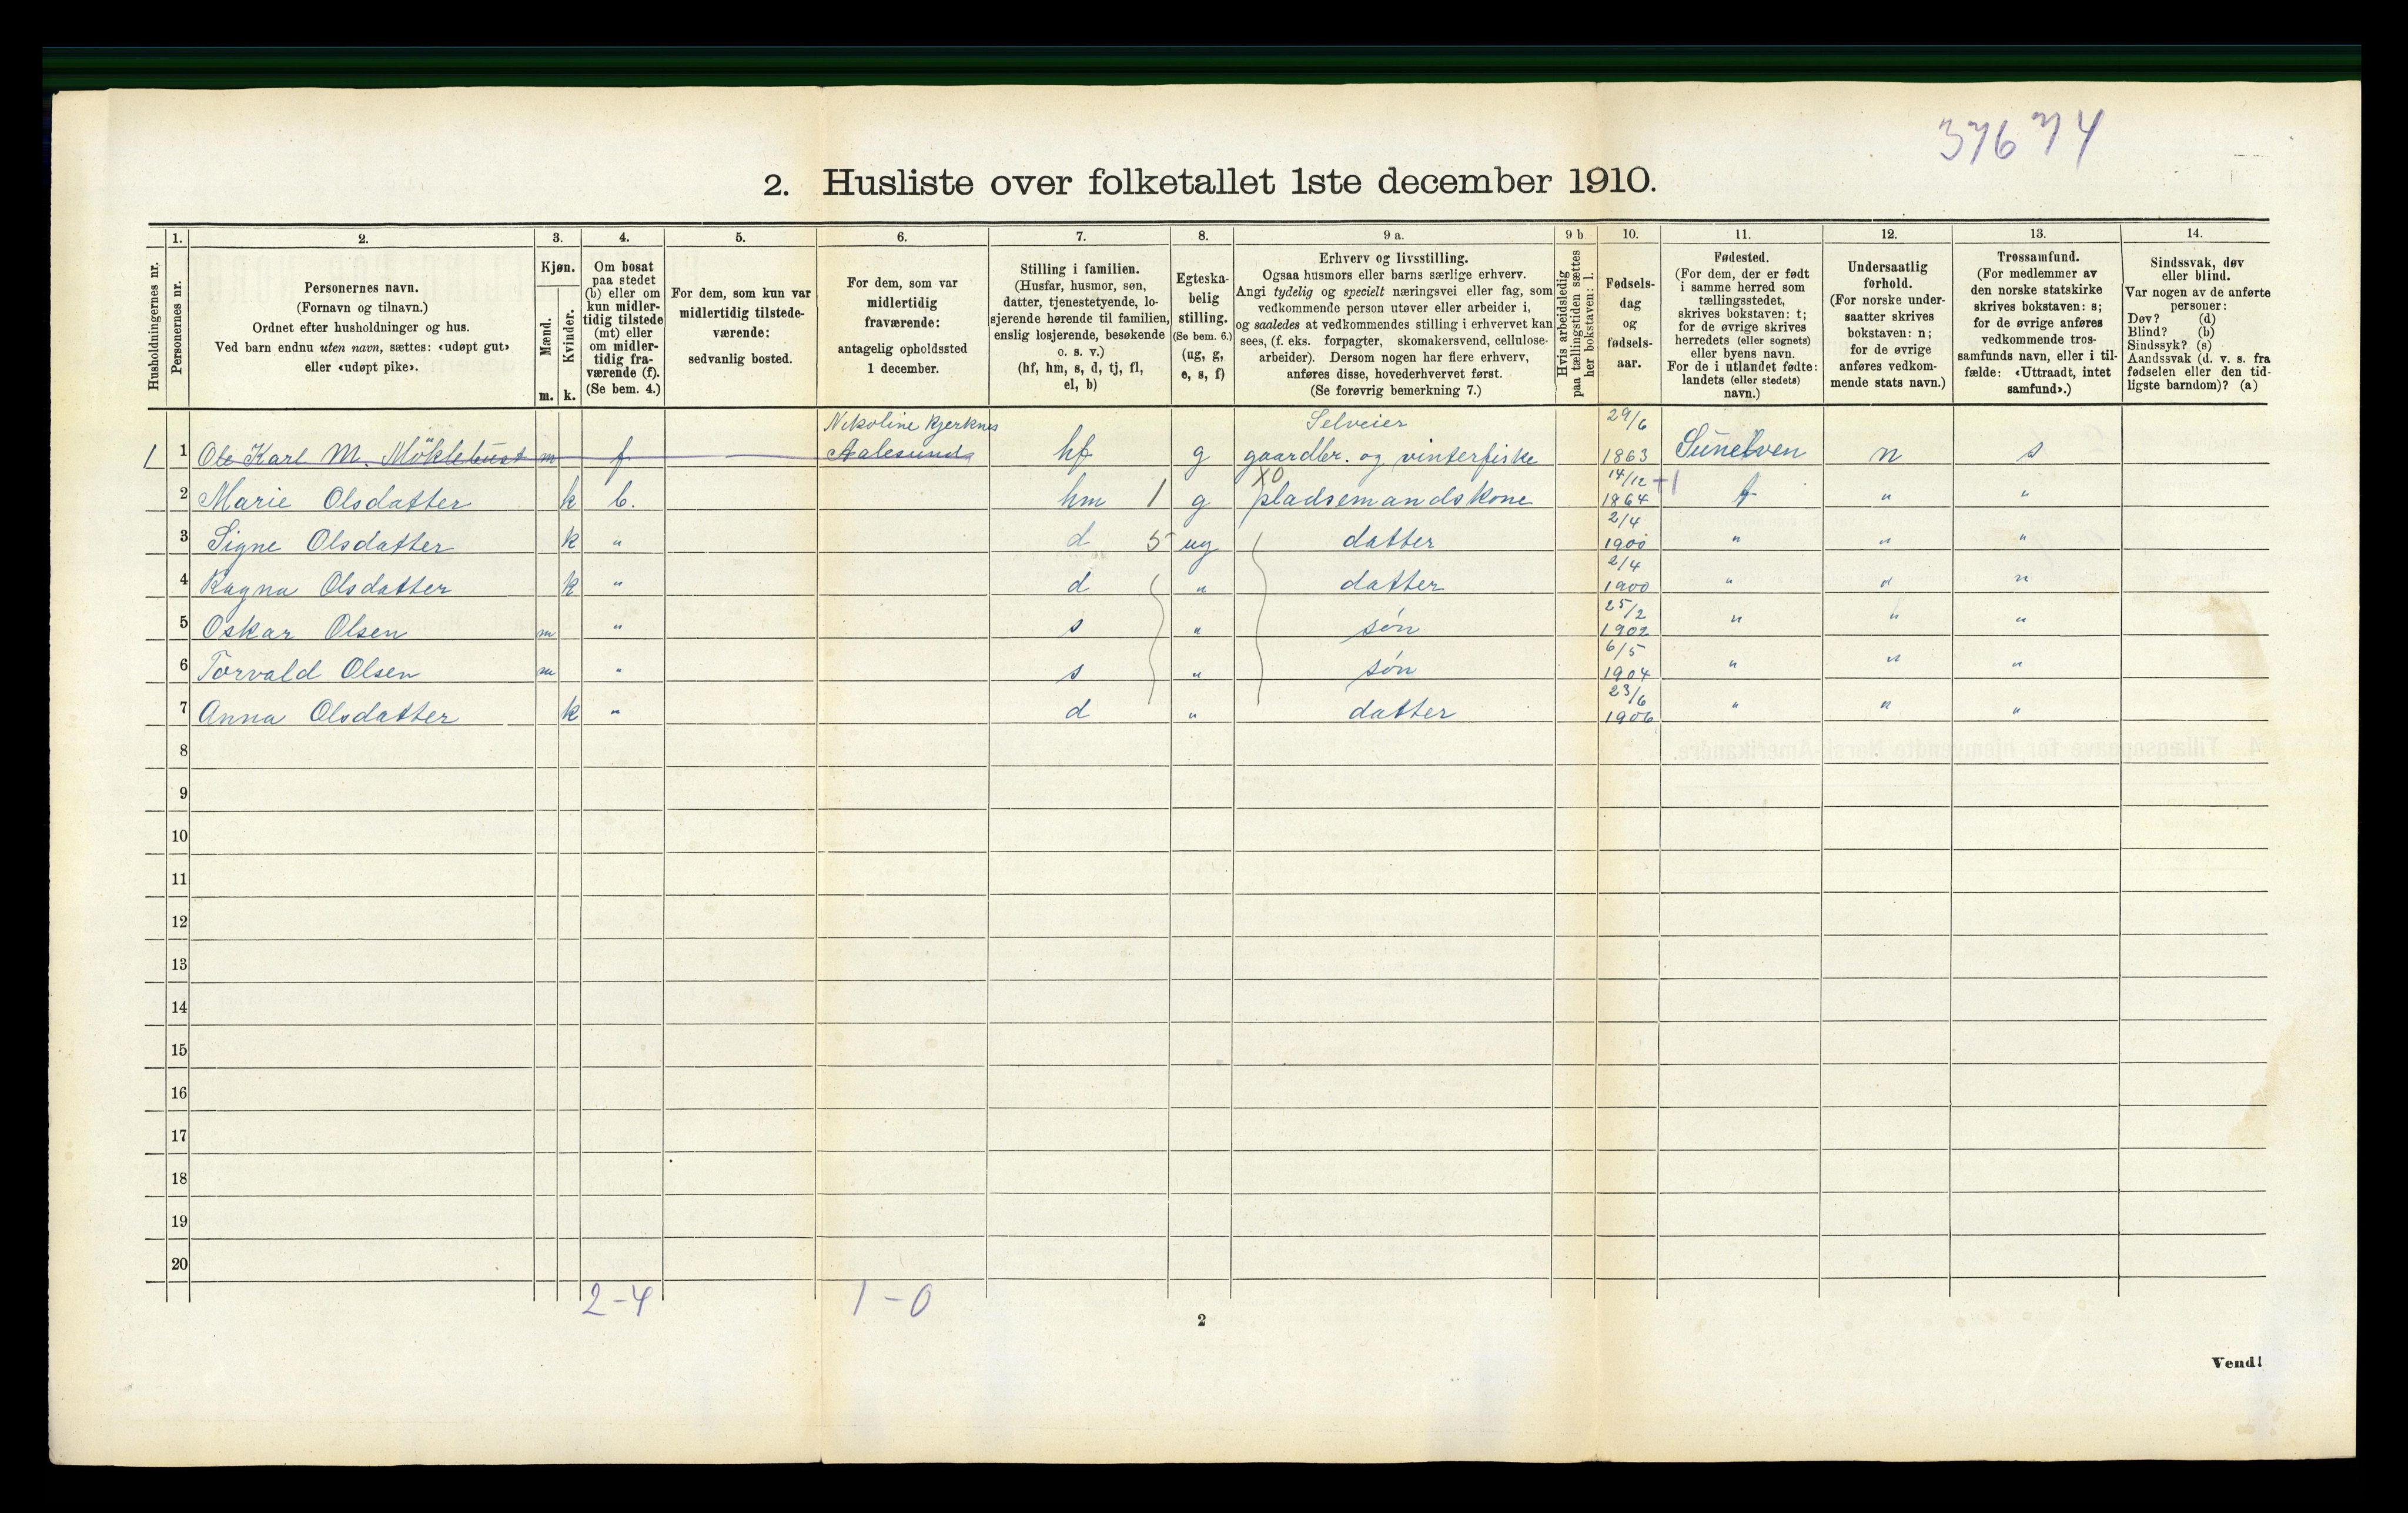 37674
2. Husliste over folketallet 1ste december 1910.
Husholdningernes nr.
1.
Personernes nr.
2.
Personernes navn.
(Fornavn og tilnavn.)
Ordnet efter husholdninger og hus.
Ved barn endnu uten navn, sættes: «udøpt gut»
eller «udøpt pike».
3.
Kjøn.
Mænd.
Kvinder.
m. k.
4.
Om bosat
paa stedet
(b) eller om
kun midler-
tidig tilstede
(mt) eller
om midler-
tidig fra-
værende (f).
(Se bem. 4.)
5.
For dem, som kun var
midlertidig tilstede-
værende:
sedvanlig bosted.
6.
For dem, som var
midlertidig
fraværende:
antagelig opholdssted
1 december.
7.
Stilling i familien.
(Husfar, husmor, søn,
datter, tjenestetyende, lo-
sjerende hørende til familien,
enslig losjerende, besøkende
o. s. v.)
(hf, hm, s, d, tj, fl,
el, b)
8.
Egteska-
belig
stilling.
(Se bem. 6.)
(ug, g,
e, s, f)
9 a.
Erhverv og livsstilling.
Ogsaa husmors eller barns særlige erhverv.
Angi tydelig og specielt næringsvei eller fag, som
vedkommende person utøver eller arbeider i,
og saaledes at vedkommendes stilling i erhvervet kan
sees, (f. eks. forpagter, skomakersvend, cellulose-
arbeider). Dersom nogen har flere erhverv,
anføres disse, hovederhvervet først.
(Se forøvrig bemerkning 7.)
9 b
Hvis arbeidsledig
paa tællingstiden sættes
her bokstaven: l.
10.
Fødsels-
dag
og
fødsels-
aar.
11.
Fødested.
(For dem, der er født
i samme herred som
tællingsstedet,
skrives bokstaven: t;
for de øvrige skrives
herredets (eller sognets)
eller byens navn.
For de i utlandet fødte:
landets (eller stedets)
navn.)
12.
Undersaatlig
forhold.
(For norske under-
saatter skrives
bokstaven: n;
for de øvrige
anføres vedkom-
mende stats navn.)
13.
Trossamfund.
(For medlemmer av
den norske statskirke
skrives bokstaven: s;
for de øvrige anføres
vedkommende tros-
samfunds navn, eller i til-
fælde: «Uttraadt, intet
samfund».)
14.
Sindssvak, døv
eller blind.
Var nogen av de anførte
personer:
Døv? (d)
Blind? (b)
Sindssyk? (s)
Aandssvak (d. v. s. fra
fødselen eller den tid-
ligste barndom)? (a)
Nikoline Kjerknes Selveier 29/6
1 1 Ole Karl M. Möklebust m f Aalesund hf g gaardbr. og vinterfiske 1863 Sunelven n s
X0 14/12 +1
2 Marie Olsdatter k b. hm 1 g pladsemandskone 1864 t " "
2/4
3 Signe Olsdatter k " d 5 ug datter 1900 " " "
2/4
4 Ragna Olsdatter k " d " datter 1900 " " "
25/2
5 Oskar Olsen m " s " søn 1902 " " "
6/5
6 Torvald Olsen m " s " søn 1904 " " "
23/6
7 Anna Olsdatter k " d " datter 1906 " " "
8
9
10
11
12
13
14
15
16
17
18
19
20
2-4 1-0
2
Vend!